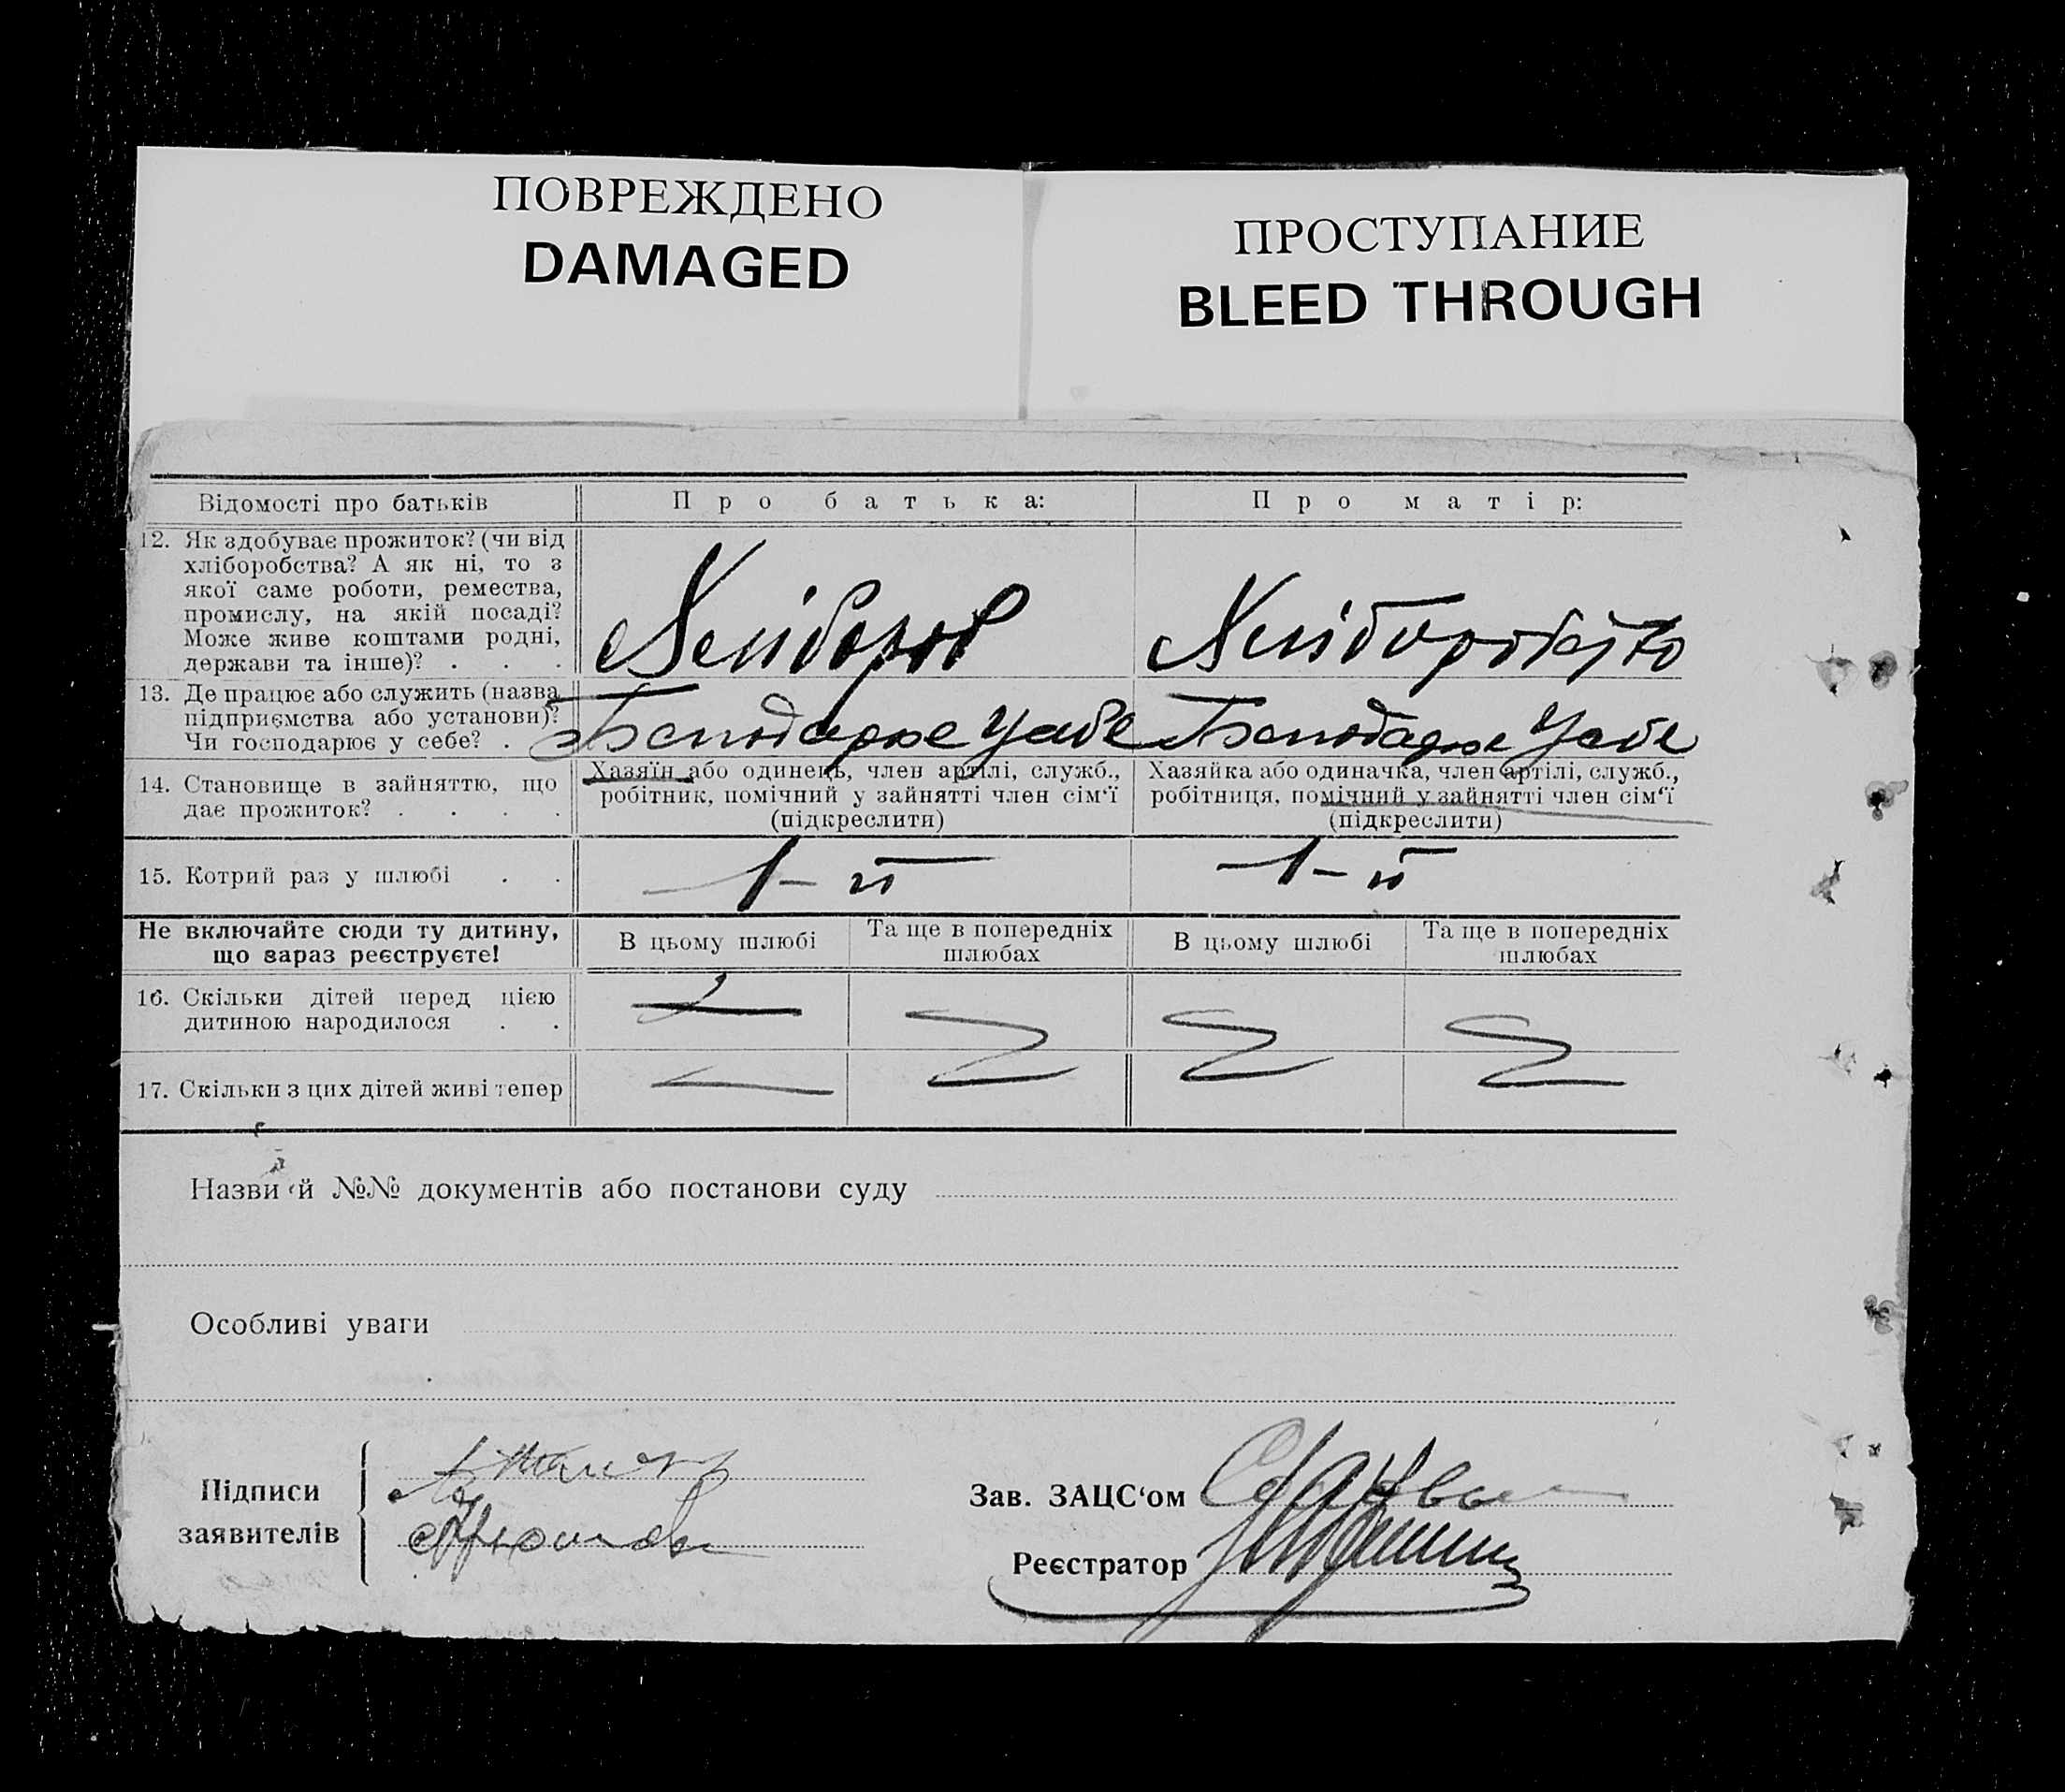 ПОВРЕЖДЕНО
DAMAGED
ПРОСТУПАНИЕ
BLEED THROUGH
Відомості про батьків
Про батька:
Про матір:
12. Як здобуває прожиток? (чи від
хліборобства? А як ні, то з
якої саме роботи, ремества,
промислу, на якій посаді?
Може живе коштами родні,
держави та інше)? . . .
Хлібороб
13. Де працює або служить (назва
підприємства або установи)?
Чи господарює у себе? .
14. Становище в зайняттю, що
дає прожиток? . . . .
Хазяїн або одинець, член артілі, служб.,
робітник, помічний у зайнятті член сім‘ї
(підкреслити)
Хазяйка або одиначка, член артілі, служб.,
робітниця, помічний у зайнятті член сім‘ї
(підкреслити)
15. Котрий раз у шлюбі . .
1-й
1-й
Не включайте сюди ту дитину,
що зараз реєструєте!
В цьому шлюбі
Та ще в попередніх
шлюбах
В цьому шлюбі
Та ще в попередніх
шлюбах
16. Скільки дітей перед цією
дитиною народилося . .
17. Скільки з цих дітей живі тепер
Назви й №№ документів або постанови суду
Особливі уваги
Підписи
заявителів
Зав. ЗАЦС‘ом
Реєстратор